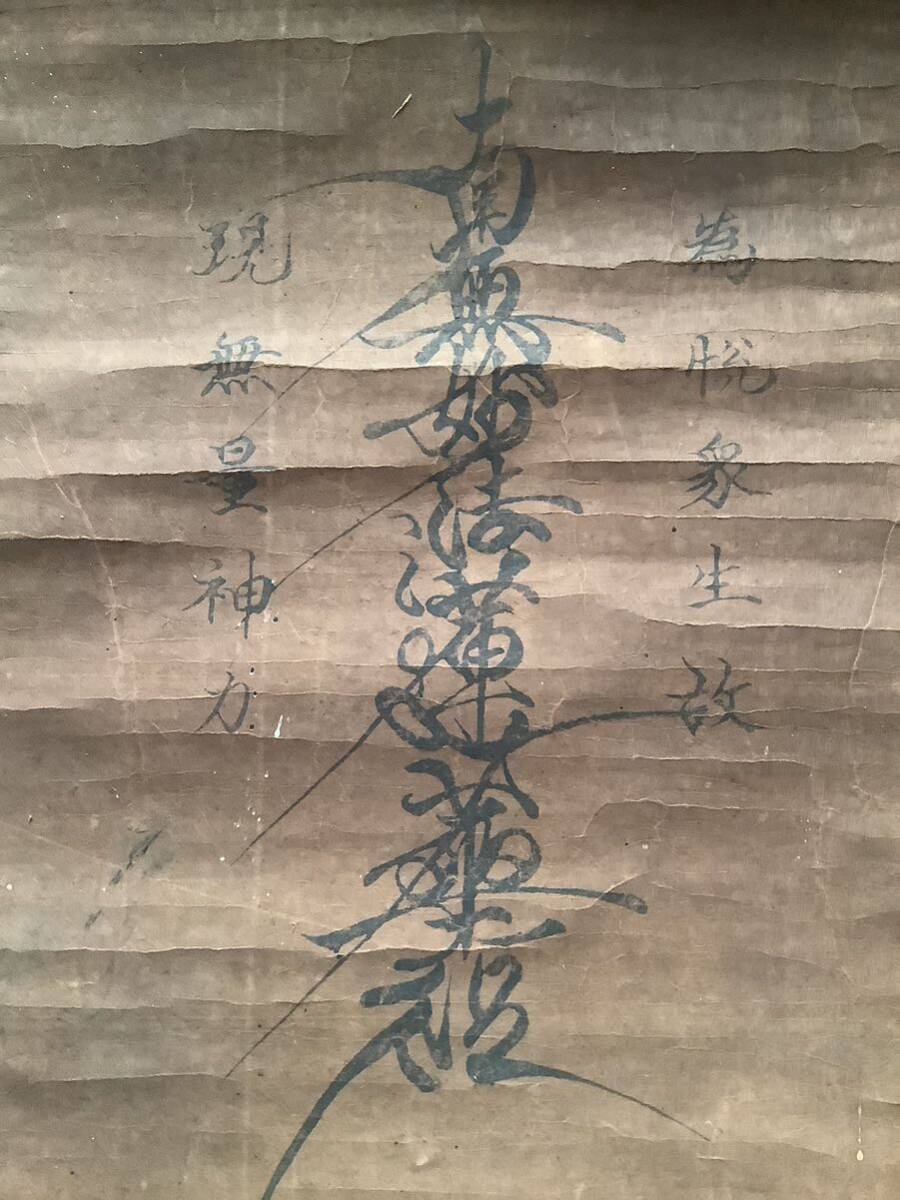 為悦衆生故
南無妙法蓮華経
現無量神力